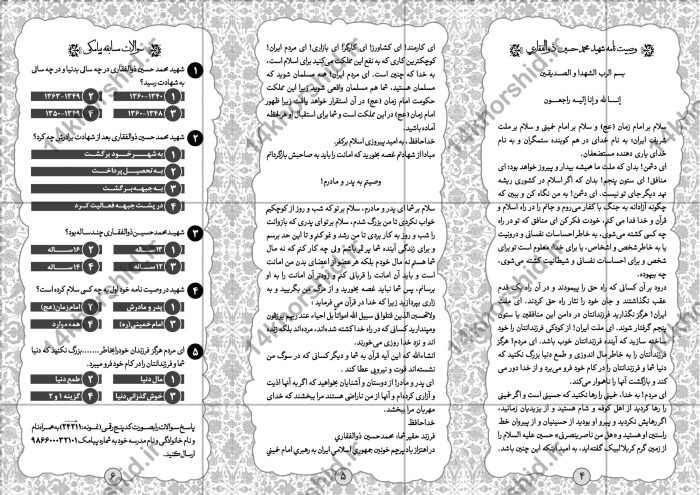 وصیت نامه شهید محمد حسین ذوالفقاری
بسم الرب الشهدا و الصدیقین
انا لله و انا الیه راجعون
سلام بر امام زمان (عج) و سلام بر امام خمینی و سلام بر ملت
شریف ایران؛ به نام خدای در هم کوبنده ستمگران و به نام
خدای یاری دهنده مستضعفان.
ای دشمن! بدان که ملت ما همیشه بیدار و پیروز خواهد بود؛ ای
منافق! ای ستون پنجم! بدان که اگر اسلام در کشوری ریشه
نهد دیگر جای تو نیست. ای دشمن! به من نگاه کن و ببین که
چگونه آزادانه به جنگ با کفار می‌روم و جانم را در راه اسلام و
قرآن و خدا فدا می کنم، خودت فکر کن ای منافق که تو در راه
چه کسی کشته می‌شوی، به خاطر احساسات نفسانی و درونیت
یا به خاطر شخص و اشخاص، یا برای خدا؛ معلوم است تو برای
شخص و برای احساسات نفسانی و شیطانیت کشته می‌شوی،
چه بیهوده.
درود بر آن کسانی که راه حق را پیمودند و در آن راه یک قدم
عقب نگذاشتند و جان خود را نثار راه حق کردند. ای ملت
ایران! هرگز نگذارید فرزندانتان در دامن این منافقین یا ستون
پنجم گرفتار شوند. ای ملت ایران! از کودکی فرزندانتان را خود
ساخته سازید که آینده فرزندانتان خوب باشد. ای مردم! هرگز
فرزندانتان را به خاطر مال اندوزی و طمع دنیا بزرگ نکنید که
دنیا شما و فرزندانتان را در کام خود فرو می‌برد و از خدا دور می
کند و بازگشت آنها را ناهموار می‌کند.
ای مردم! به خدا، خمینی را رها نکنید که حسینی است و اگر خمینی
را رها کردید از اهل کوفه و شام هستید و از یزیدیان زمانید،
اگر رهایش نکردید و پیرو او بودید از حسینیان و از پیروان خط
راستین او هستید و «هل من ناصر ینصرنی» حسین علیه السلام را
از زمین گرم کربلا لبیک گفته‌اید، به امید اینکه این چنین باشد.
۴
ای کارمند! ای کشاورز! ای کارگر! ای بازاری! ای مردم ایران!
کوچکترین کاری که به نفع این مملکت می‌کنید برای اسلام است،
به خدا که چنین است. ای مردم ایران! همه مسلمان شوید که
مسلمان هستید، شما هم مسلمان واقعی شوید زیرا این مملکت
حکومت امام زمان (عج) در آن استقرار خواهد یافت زیرا ظهور
امام زمان (عج) در این مملکت است و شما برای استقبال او هر لحظه
آماده باشید.
خدا حافظ، به امید پیروزی اسلام بر کفر.
مبادا از شهادتم غصه بخورید که امانت را باید به صاحبش بازگردانم
وصیتم به پدر و مادرم!
سلام بر شما ای پدر و مادرم، سلام بر تو که شب و روز از کوچکیم
خواب نکردی تا من بزرگ شدم، سلام بر تو ای پدری که بازوانت
را شب و روز به کار بردی تا من رشد و نمو کنم و تا این حد برسم
و برای زندگی آینده شما پر قربانیم ولی چه کار کنم که نه مال
شما هستم نه مال خودم بلکه هر عضو از اعضای بدن من امانت
است و باید آن امانت را قربانی کنم و زودتر آن امانت را به او
برسانم، پس شما نباید غصه بخورید و از مرگ من بگریید و به
زاری بپردازید زیرا که خدا در قرآن می فرماید :
ولاتحسبن الذین قتلوا فی سبیل الله امواتاً بل احیاء عند ربهم یرزقون
ومپندارید کسانی که در راه خدا کشته شده‌اند، مرده‌اند بلکه زنده
اند و نزد خدا روزی می‌خورند.
انشاءالله که این آیه قرآن به شما و دیگر کسانی که در سوگ من
نشسته‌اند قوت و نیرویی عطا کند .
ای پدر و مادر! از دوستان و آشنایان بخواهید که اگر به آنها اذیت
و آزاری کرده‌ام و آنها از من ناراضی هستند مرا ببخشند که خدای
مهربان مرا ببخشد.
خدا حافظ
فرزند حقیر شما، محمد حسین ذوالفقاری
در اهتزاز باد پرچم خونین جمهوری اسلامی ایران به رهبری امام خمینی
۵
سوالات مسابقه پیامکی
۱ شهید محمد حسین ذوالفقاری در چه سالی بدنیا و در چه سالی
به شهادت رسید؟
۱ ۱۳۴۰-۱۳۶۰ ۲ ۱۳۴۹-۱۳۶۳
۳ ۱۳۴۸-۱۳۶۰ ۴ ۱۳۴۹-۱۳۵۰
۲ شهید محمد حسین ذوالفقاری بعد از شهادت برادرش چه کرد؟
۱ به شهر خود برگشت
۲ به تحصیل پرداخت
۳ به جبهه برگشت
۴ در پشت جبهه فعالیت کرد
۳ شهید محمد حسین ذوالفقاری چند ساله بود؟
۱ ۱۳ ساله ۲ ۱۶ ساله
۳ ۱۲ ساله ۴ ۱۴ ساله
۴ شهید در وصیت نامه خود اولی به چه کسی سلام کرده است؟
۱ پدر و مادرش ۲ امام زمان (عج)
۳ امام خمینی (ره) ۴ همه موارد
۵ ای مردم هرگز فرزندان خود را بخاطر........بزرگ نکنید که دنیا
شما و فرزندانتان را در کام خود فرو میبرد.
۱ مال دنیا ۲ طمع دنیا
۳ خوش گذرانی دنیا ۴ گزینه ۱ و ۲
پاسخ سوالات را بصورت کد پنج رقمی (نمونه: ۲۴۲۱۱) به همراه نام
و نام خانوادگی و نام مدرسه خود به شماره پیامک ۹۸۶۶۰۰۰۳۲۱۰۱
ارسال کنید.
۶
14khorshid.ir